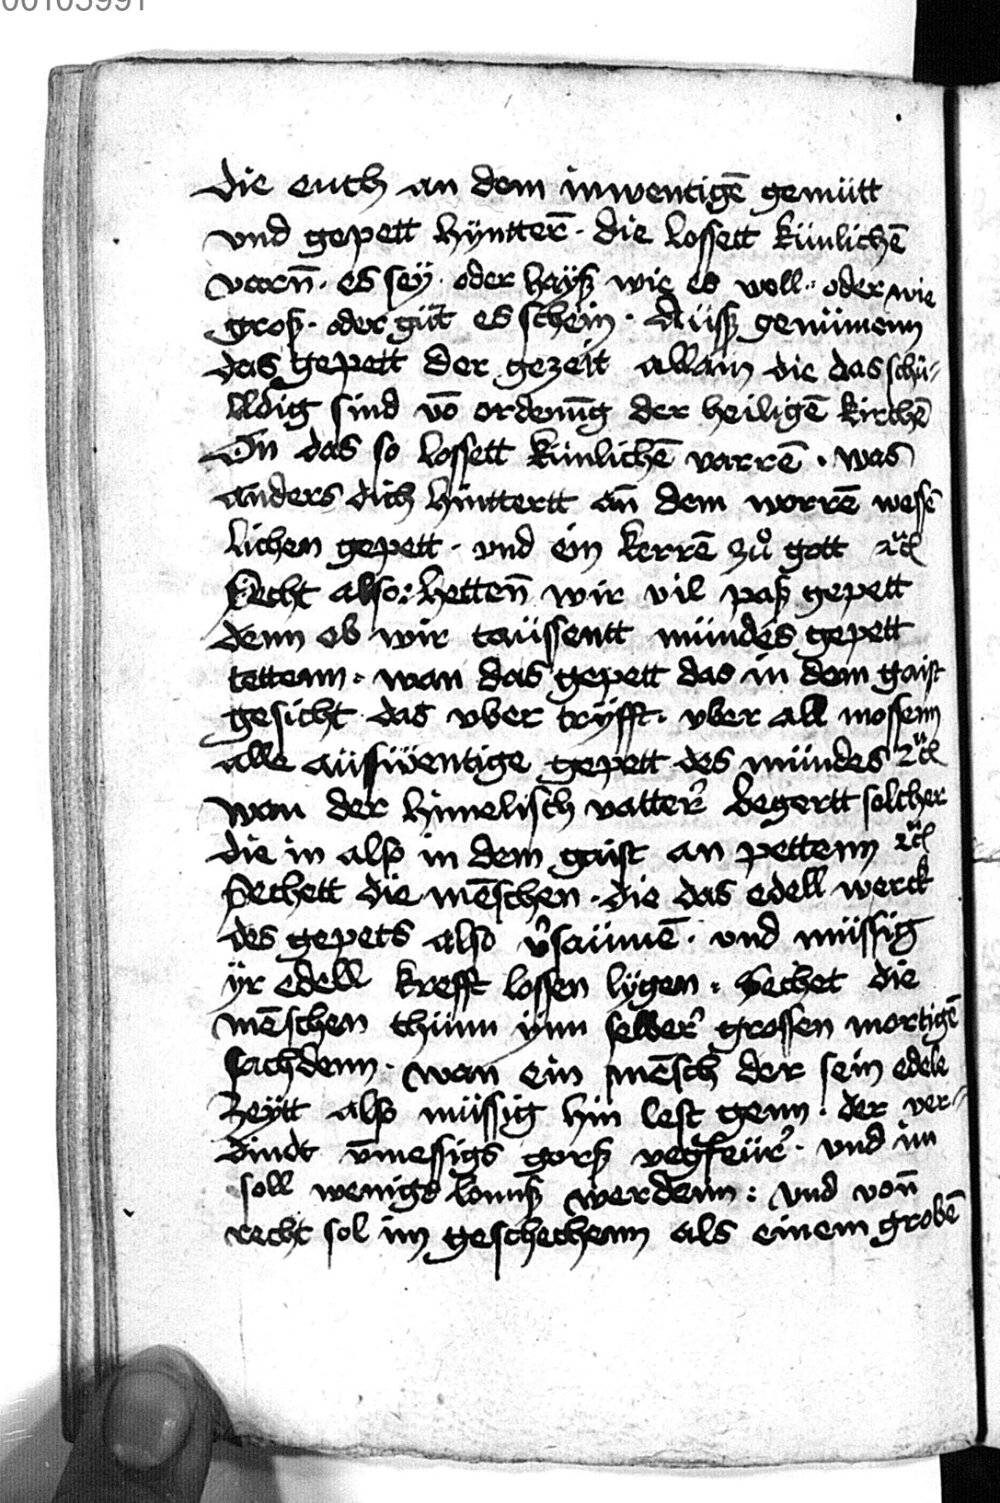 00103991
die euch an dem inwentigē gemütt
vnd gepett hyntterē · die lossett künlichē
varn̄ · es sey · oder hayß wie es woll · oder wie
groß · oder gut es schein · Aüsß genümenn
das gepett der gezeit allain die das schu-
lldig sind vō ordenu̅g der heiligē kirchē
On das so lossett künlichē varrē · was
anders dich hinttertt an̄ dem worrē wessē
lichen gepett · vnd ein kerrē zů gott
Secht also : hetten̄ wir vil paß gepett
denn ob wir taüssentt mündes gepett
tettenn · wan das gepett das in dem gaist
gesicht das vber tryfft · vber all mossenn
alle aüswentige gepett des mündes
wan der himelisch vatter begertt solcher
die in also in dem gaist an pettenn
Sechett die mēschen · die das edell werck
des gepets also v̾saümē · vnd müssig
yr edell krefft lossen lygen · Sechet die
mēschen thünn ynn selber grossen mortigē
schadenn · wan ein mēsch der sein edele
Zeytt also müssig hin lest genn · der ver-
dindt v̄messigs gorß vegfeür · vnd im
soll wenigs lonnß werdenn : vnd von̄
recht sol im geschechenn als einem grobē